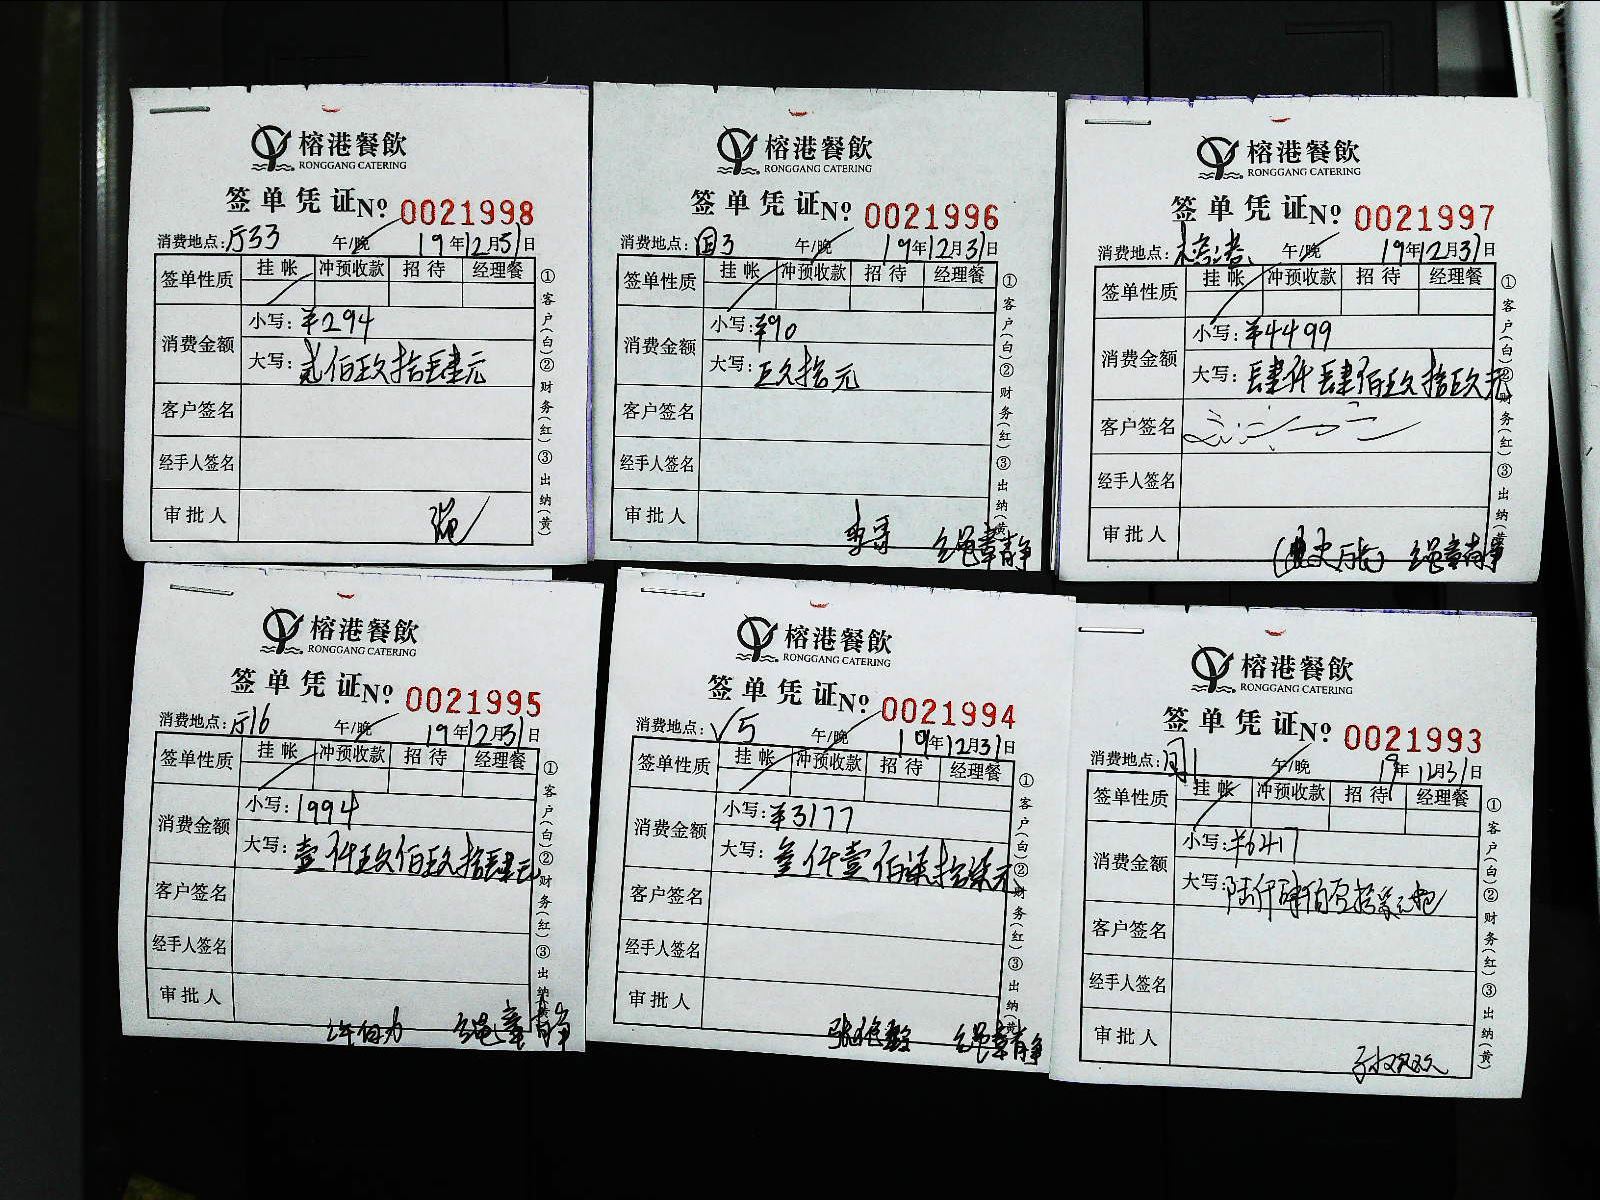 榕港餐飲
RONGGANG CATERING
签单凭证 № 0021998
消费地点:厅33 午/晚 19年12月31日
签单性质 挂帐 冲预收款 招待 经理餐
消费金额 小写:¥294
大写:贰佰玖拾肆元
客户签名
经手人签名
审批人
①客户(白)②财务(红)③出纳(黄)
榕港餐飲
RONGGANG CATERING
签单凭证 № 0021996
消费地点:国3 午/晚 19年12月31日
签单性质 挂帐 冲预收款 招待 经理餐
消费金额 小写:¥90
大写:玖拾元
客户签名
经手人签名
审批人
①客户(白)②财务(红)③出纳(黄)
榕港餐飲
RONGGANG CATERING
签单凭证 № 0021997
消费地点: 午/晚 19年12月31日
签单性质 挂帐 冲预收款 招待 经理餐
消费金额 小写:¥4499
大写:肆仟肆佰玖拾玖元
客户签名
经手人签名
审批人
①客户(白)②财务(红)③出纳(黄)
榕港餐飲
RONGGANG CATERING
签单凭证 № 0021995
消费地点:厅16 午/晚 19年12月31日
签单性质 挂帐 冲预收款 招待 经理餐
消费金额 小写:1994
大写:壹仟玖佰玖拾肆元
客户签名
经手人签名
审批人
①客户(白)②财务(红)③出纳(黄)
榕港餐飲
RONGGANG CATERING
签单凭证 № 0021994
消费地点:V5 午/晚 19年12月31日
签单性质 挂帐 冲预收款 招待 经理餐
消费金额 小写:¥3177
大写:叁仟壹佰柒拾柒元
客户签名
经手人签名
审批人
①客户(白)②财务(红)③出纳(黄)
榕港餐飲
RONGGANG CATERING
签单凭证 № 0021993
消费地点: 午/晚 19年12月31日
签单性质 挂帐 冲预收款 招待 经理餐
消费金额 小写:¥6417
大写:陆仟肆佰壹拾柒元
客户签名
经手人签名
审批人
①客户(白)②财务(红)③出纳(黄)